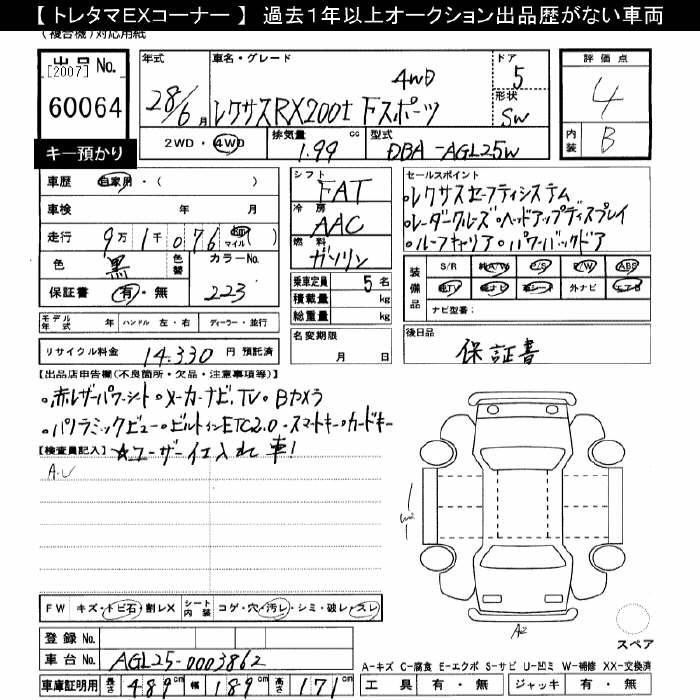 【 トレタマＥＸコーナー 】 過去１年以上オークション出品歴がない車両
(複合機)対応用紙
出品 No.
[2007]
60064
キー預かり
年式
28/6 月
車名・グレード
4WD
レクサスRX200t Fスポーツ
ドア
5
形状
SW
2WD・4WD
排気量 cc
1.99
型式
DBA-AGL25W
評価点
4
内装
B
車歴 自家用・( )
車検 年 月
走行 9万 1千 076 km マイル )
色 黒 色替 カラーNo.
保証書 有・無 223
シフト
FAT
冷房
AAC
燃料
ガソリン
乗車定員 5 名
積載量 kg
総重量 kg
セールスポイント
・レクサスセーフティシステム
・レーダークルーズ・ヘッドアップディスプレイ
・ルーフキャリア・パワーバックドア
装備品
S/R 純A/W P/S P/W ABS
純TV 純ナビ 革シート 外ナビ エアB
ナビ型番:
モデル年式 年 ハンドル 左・右 ディーラー・並行
リサイクル料金 14,330 円 預託済
名変期限
月 日
後日品
保証書
【出品店申告欄(不良箇所・欠品・注意事項等)】
・赤レザーパワーシート・メーカーナビ、TV・Bカメラ
・パノラミックビュー・ビルトインETC2.0・スマートキー・カードキー
【検査員記入】 ☆ユーザー仕入れ車!
A.U
W2
A2
スペア
FW キズ・トビ石・割レX シート内装 コゲ・穴・汚レ・シミ・破レ・スレ
登録 No.
車台 No. AGL25-0003862
A-キズ C-腐食 E-エクボ S-サビ U-凹ミ W-補修 XX-交換済
車庫証明用 長さ 489 cm 幅 189 cm 高さ 171 cm
工具 有・無 ジャッキ 有・無